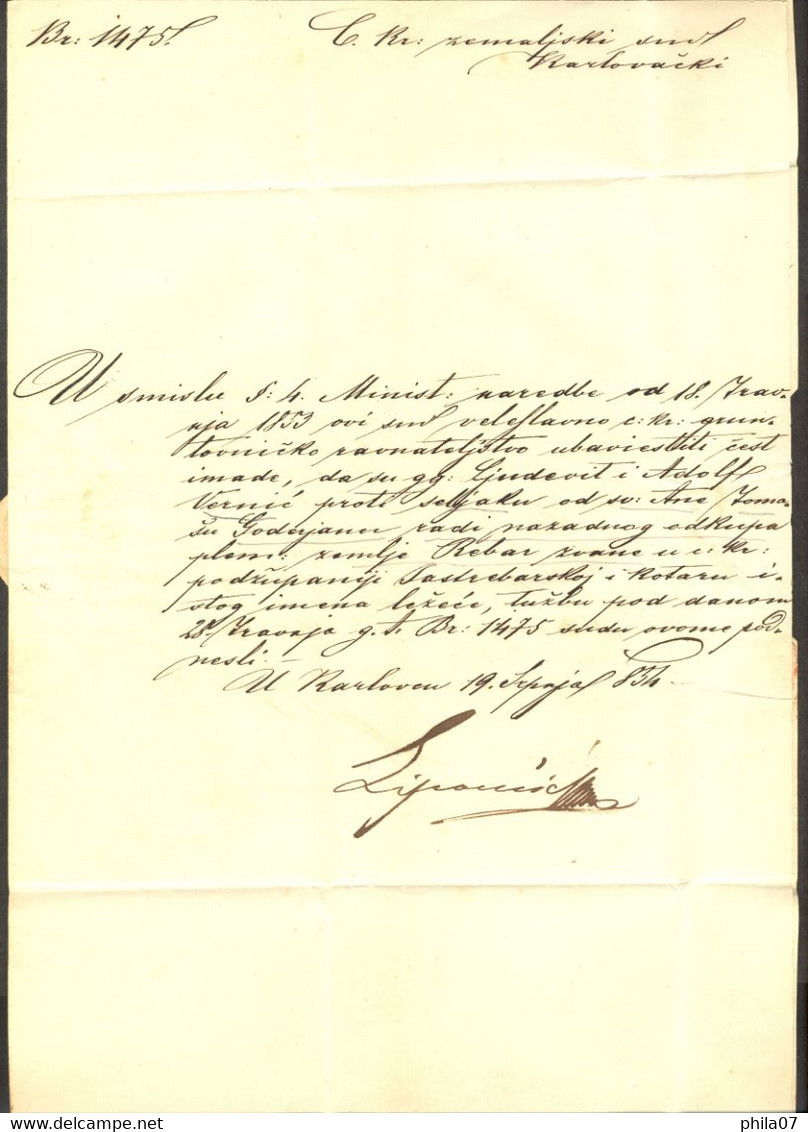 Br: 1475.
C. Kr: zemaljski sud
Karlovački
U smislu §: 4. Minist: naredbe od 18. Trav-
nja 1853 ovi sud veleslavno c: kr: grun-
tovničko ravnateljstvo ubaviestiti čest
imade, da su gg: Ljudevit i Adolf
Vernić proti seljaku od sv: Ane Toma-
šu Goderjanu radi nazadnog odkupa
plem: zemlje Rebar zvane u c: kr:
podžupaniji Jastrebarskoj i kotaru i-
stog imena ležeće, tužbu pod danom
28. Travnja g. t. Br: 1475 sudu ovome pod-
nesli.
U Karlovcu 19. Srpnja 854.
delcampe.net
phila07